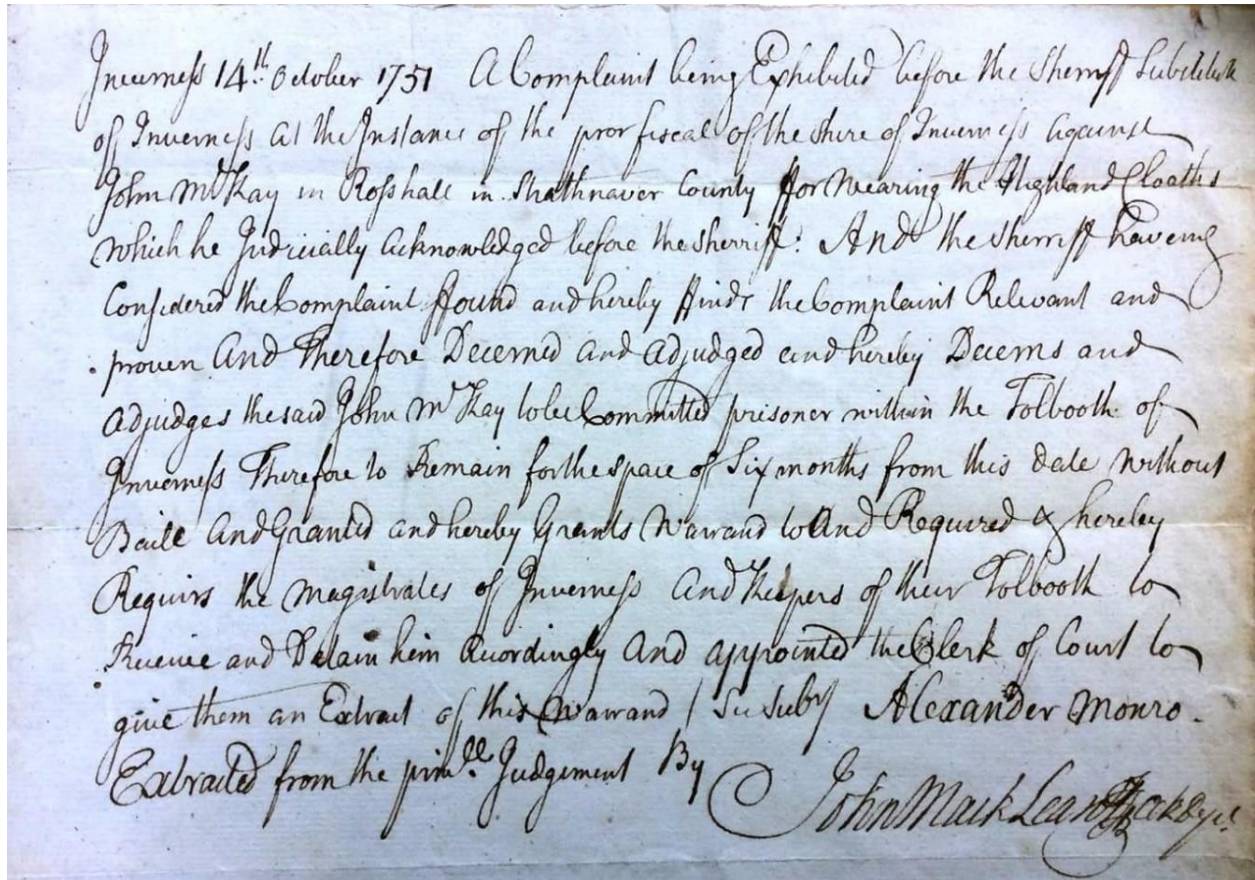 Inverness 14th. October 1751 A Complaint being Exhibited before the Sherriff Substitute
of Inverness at the Instance of the pror fiscal of the shire of Inverness against
John McKay in Rosshall in Strathnaver County ffor wearing the Highland Cloaths
which he Judicially acknowledged before the sherriff. And the sherriff haveing
Considered the Complaint ffound and hereby ffinds the Complaint Relevant and
proven And Therefore Decerned and adjudged and hereby Decerns and
adjudges the said John McKay to be Committed prisoner within the Tolbooth of
Inverness Therefore to Remain for the space of Six months from this date without
Baile And Granted and hereby Grants Warrand to And Required & hereby
Requirs the magistrates of Inverness And Keepers of their Tolbooth to
Receive and Detain him Accordingly And appointed the Clerk of Court to
give them an Extract of this Warrand / Sic Subr Alexander Monro.
Extracted from the prinll. Judgement By
John MackLean